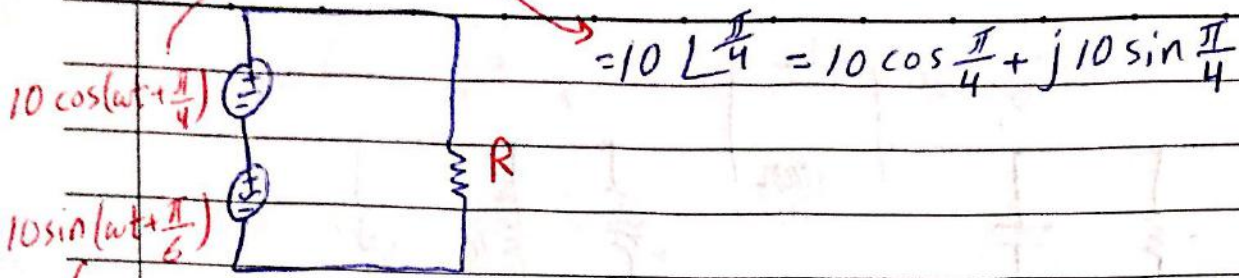 =10 ∠π/4 = 10 cos π/4 + j 10 sin π/4
10 cos(ωt+π/4)
+
-
R
+
-
10sin(ωt+π/6)